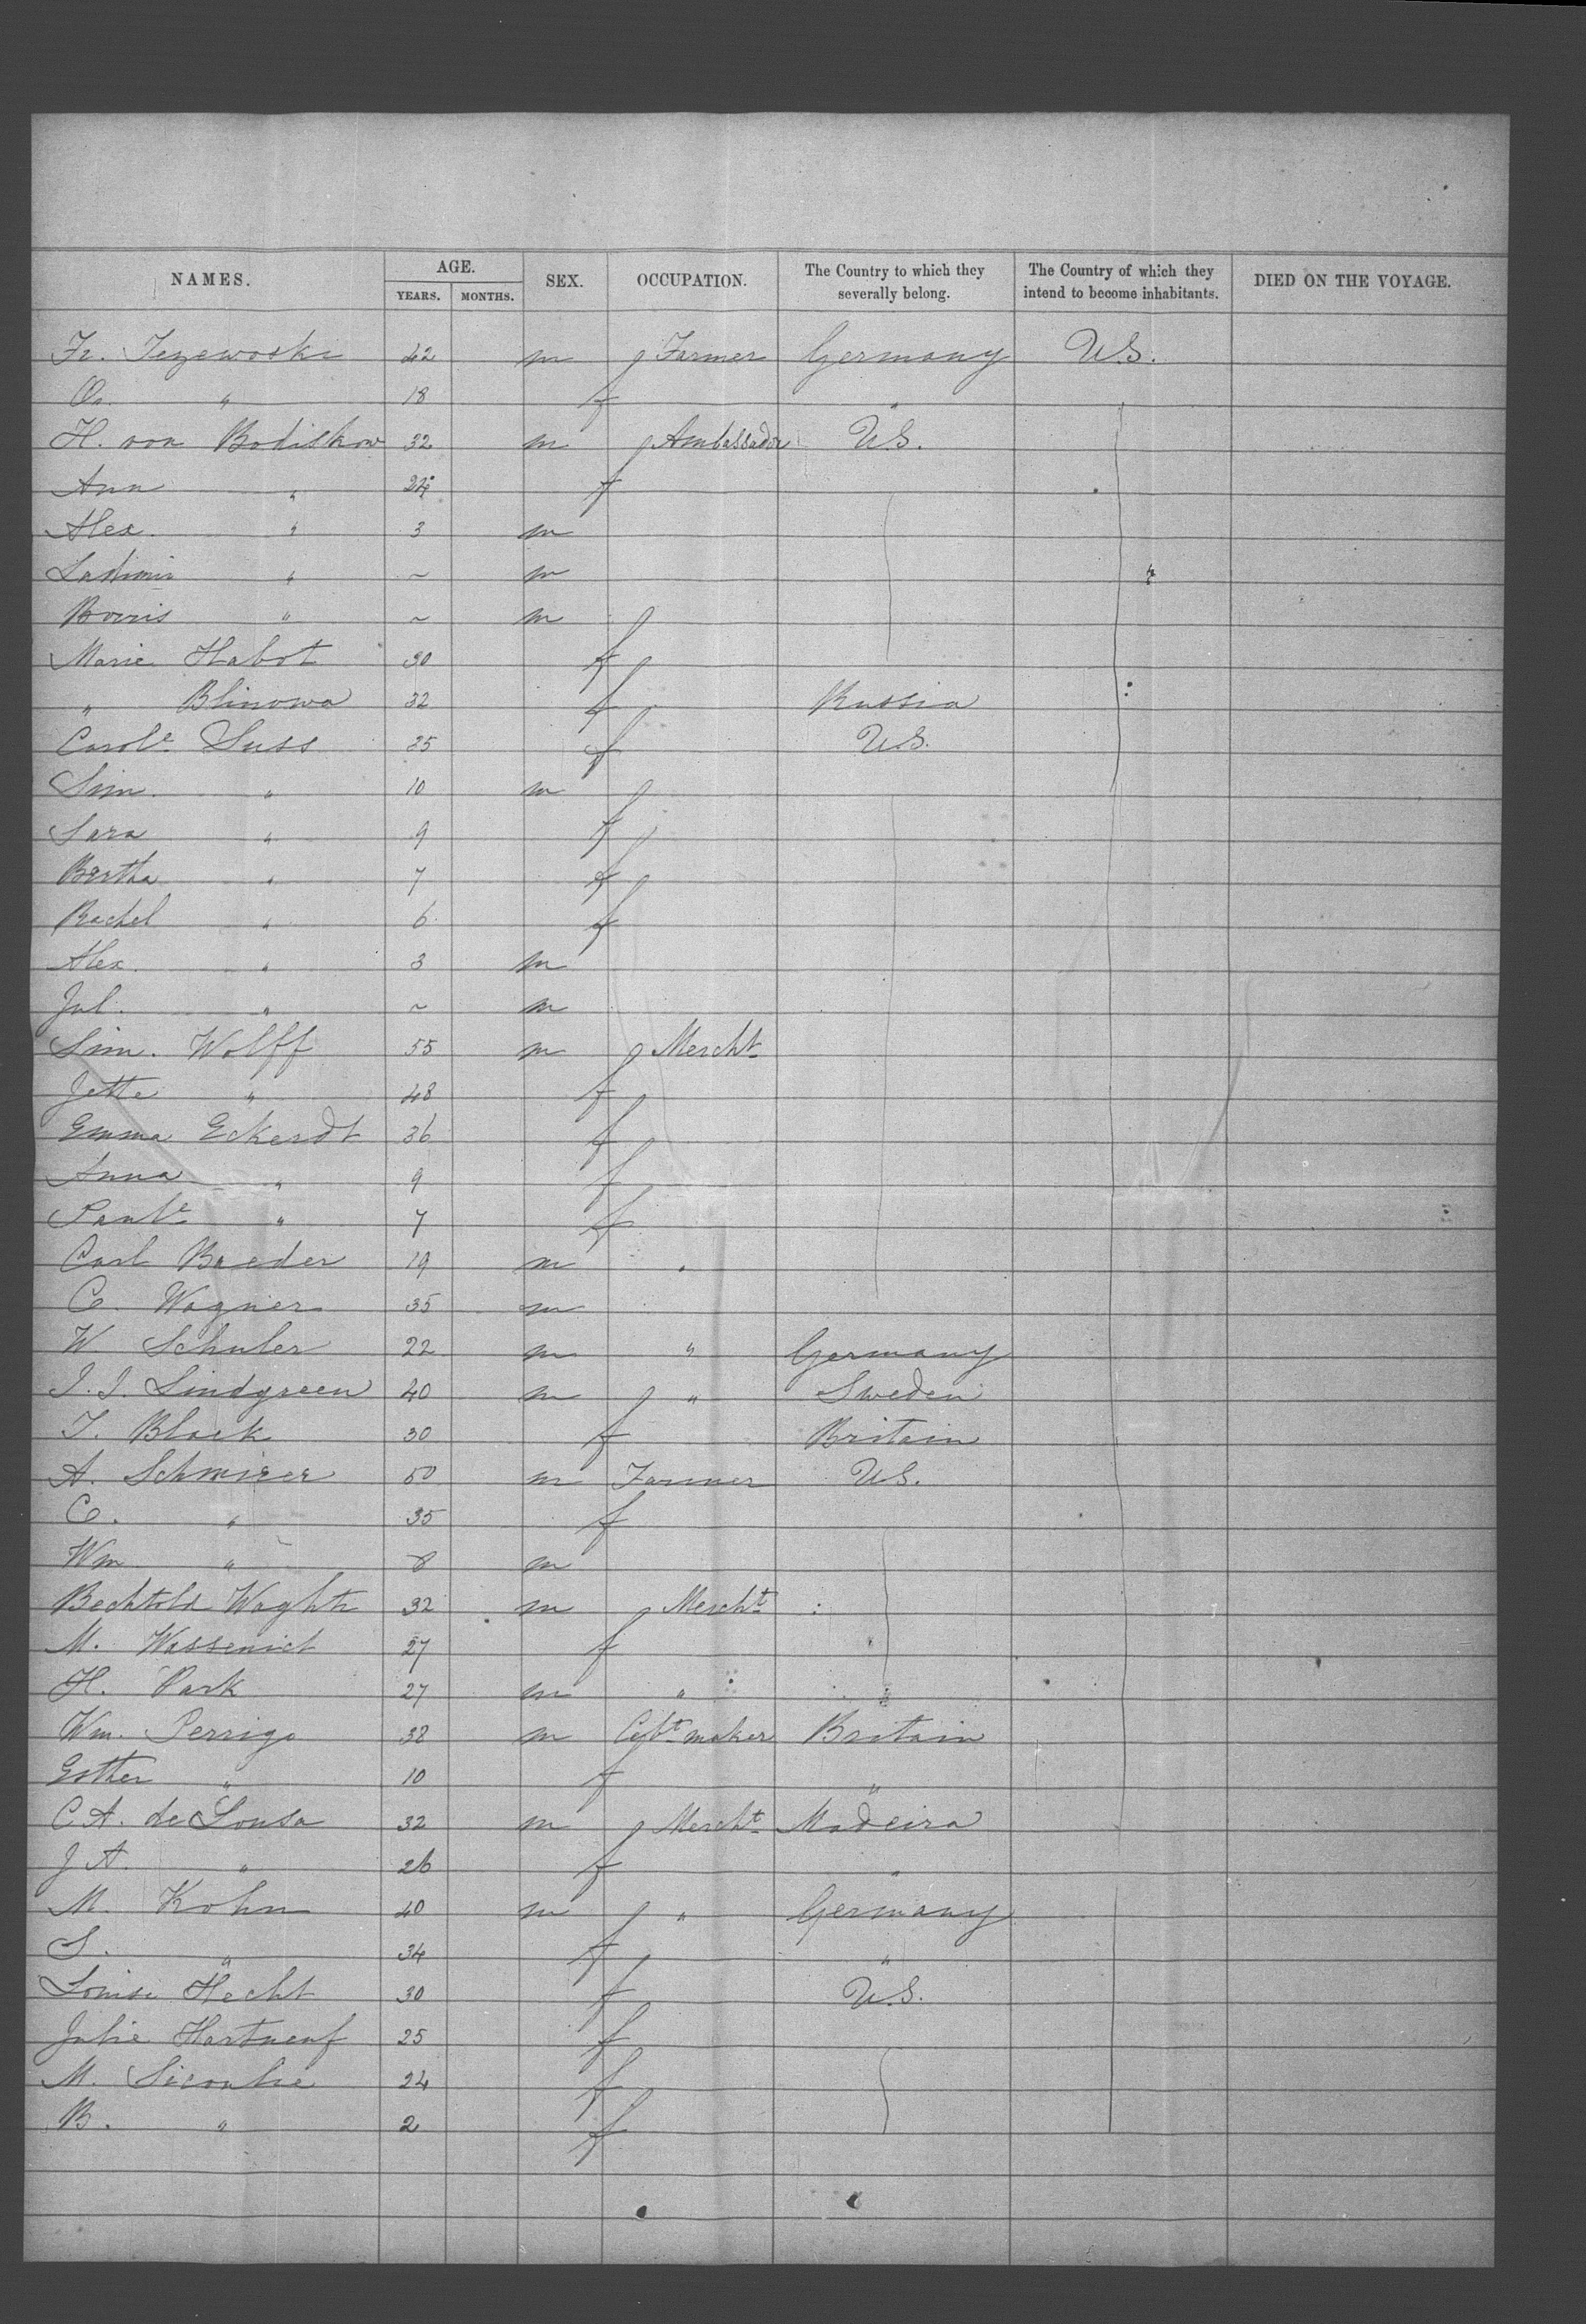 NAMES. AGE. SEX. OCCUPATION. The Country to which they severally belong. The Country of which they intend to become inhabitants. DIED ON THE VOYAGE.
YEARS. MONTHS.
Fr. Jezewoski 42 m Farmer Germany U.S.
O. " 18 f "
H. von Bodiskow 32 m Ambassador U.S.
Ann " 24 f
Alex. " 3 m
Ladimir " ~ m "
Borris " ~ m
Marie Habot 30 f
" Blinowa 32 f Russia
Carole Suss 25 f U.S.
Sim. " 10 m
Sara " 9 f
Bertha " 7 f
Rachel " 6 f
Alex. " 3 m
Jul. " ~ m
Sim. Wolff 55 m Mercht
Jette " 48 f
Emma Eckerdt 36 f
Anna " 9 f
Paule " 7 f
Carl Baeder 19 m "
C. Wagner 35 m
W. Schuler 22 m " Germany
J. J. Lindgreen 40 m " Sweden
J. Black 30 f Britain
A. 50 m Farmer U.S.
C. " 35 f
Wm " 8 m
Bechtold 32 m Mercht
M. 27 f
H. Park 27 m "
Wm. Perrigo 38 m Cabt maker Britain
Esther " 10 f "
C A. de Sousa 32 m Mercht Madeira
J A. " 26 f "
M. Kohn 40 m " Germany
S. " 34 f "
Louise Hecht 30 f U.S.
Julie Hartneuf 25 f
M. 24 f
B. " 2 f